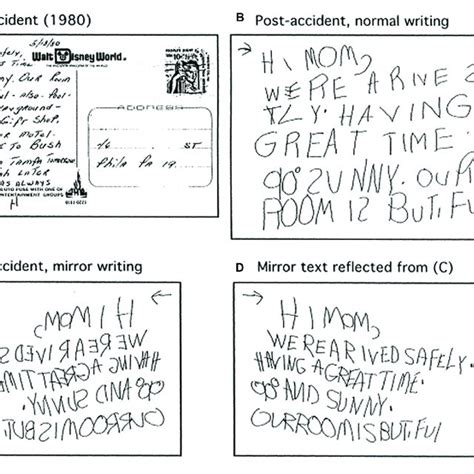 cident (1980)
5/13/80
Walt Disney World.
ny. Our Room
ol - also - Pool-
ayground-
Gift Shop.
r Motel.
s to Bush
Tampa Tomorrow
h Later
as Always
ENTERTAINMENT GROUPS
ADDRESS
ST
Phila Pa 19
B Post-accident, normal writing
HI, MOM,
WERE ARIVE S
TLY. HAVING
GREAT TIME.
90° SUNNY. OUR
ROOM IS BUTIFUL
ccident, mirror writing
HI MOM,
WE RE ARIVED S
HAVING A GREAT TIME
90° AND SUNNY.
OURROOMISBUTI
D Mirror text reflected from (C)
HI MOM,
WE RE ARIVED SAFELY.
HAVING A GREAT TIME.
90° AND SUNNY.
OURROOMISBUTIFUL